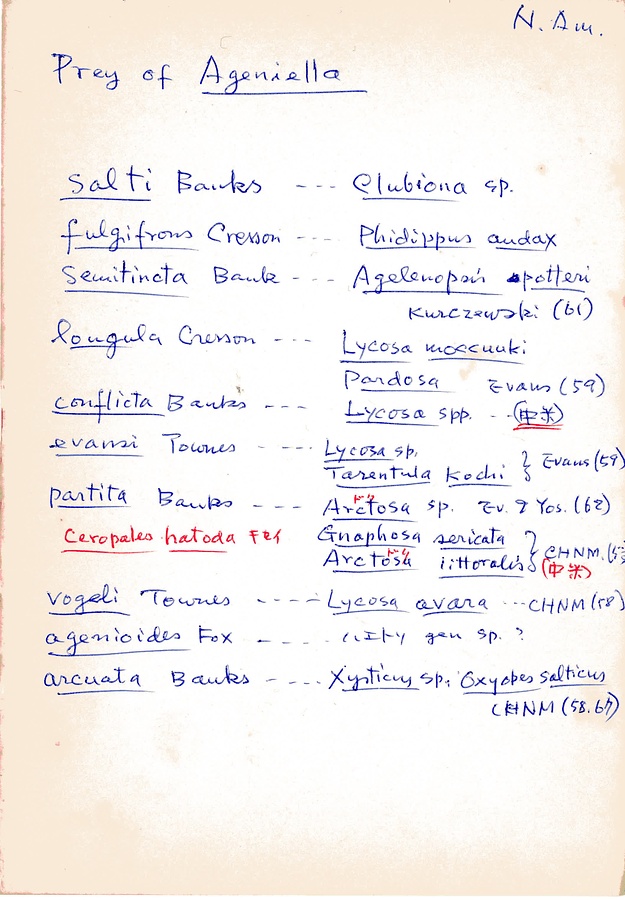 N. Am.
Prey of Ageniella
salti Banks --- Clubiona sp.
fulgifrons Cresson --- Phidippus audax
Semitincta Bank --- Agelenopsis potteri
Kurczewski (61)
longula Cresson --- Lycosa moccunki
Pardosa Evans (59)
conflicta Banks --- Lycosa spp. -- (中米)
evansi Townes ---- Lycosa sp.
Tarentula Kochi } Evans (59)
partita Banks --- Arctosa sp. Ev. & Yos. (62)
Ceropales hatoda Gnaphosa sericata
Arctosa littoralis } CHNM.
(中米)
vogeli Townes ---- Lycosa avara --- CHNM (58)
agenioides Fox ---- ハエトリ gen sp. ?
arcuata Banks --- Xysticus sp. Oxyopes salticus
CHNM (58.61)